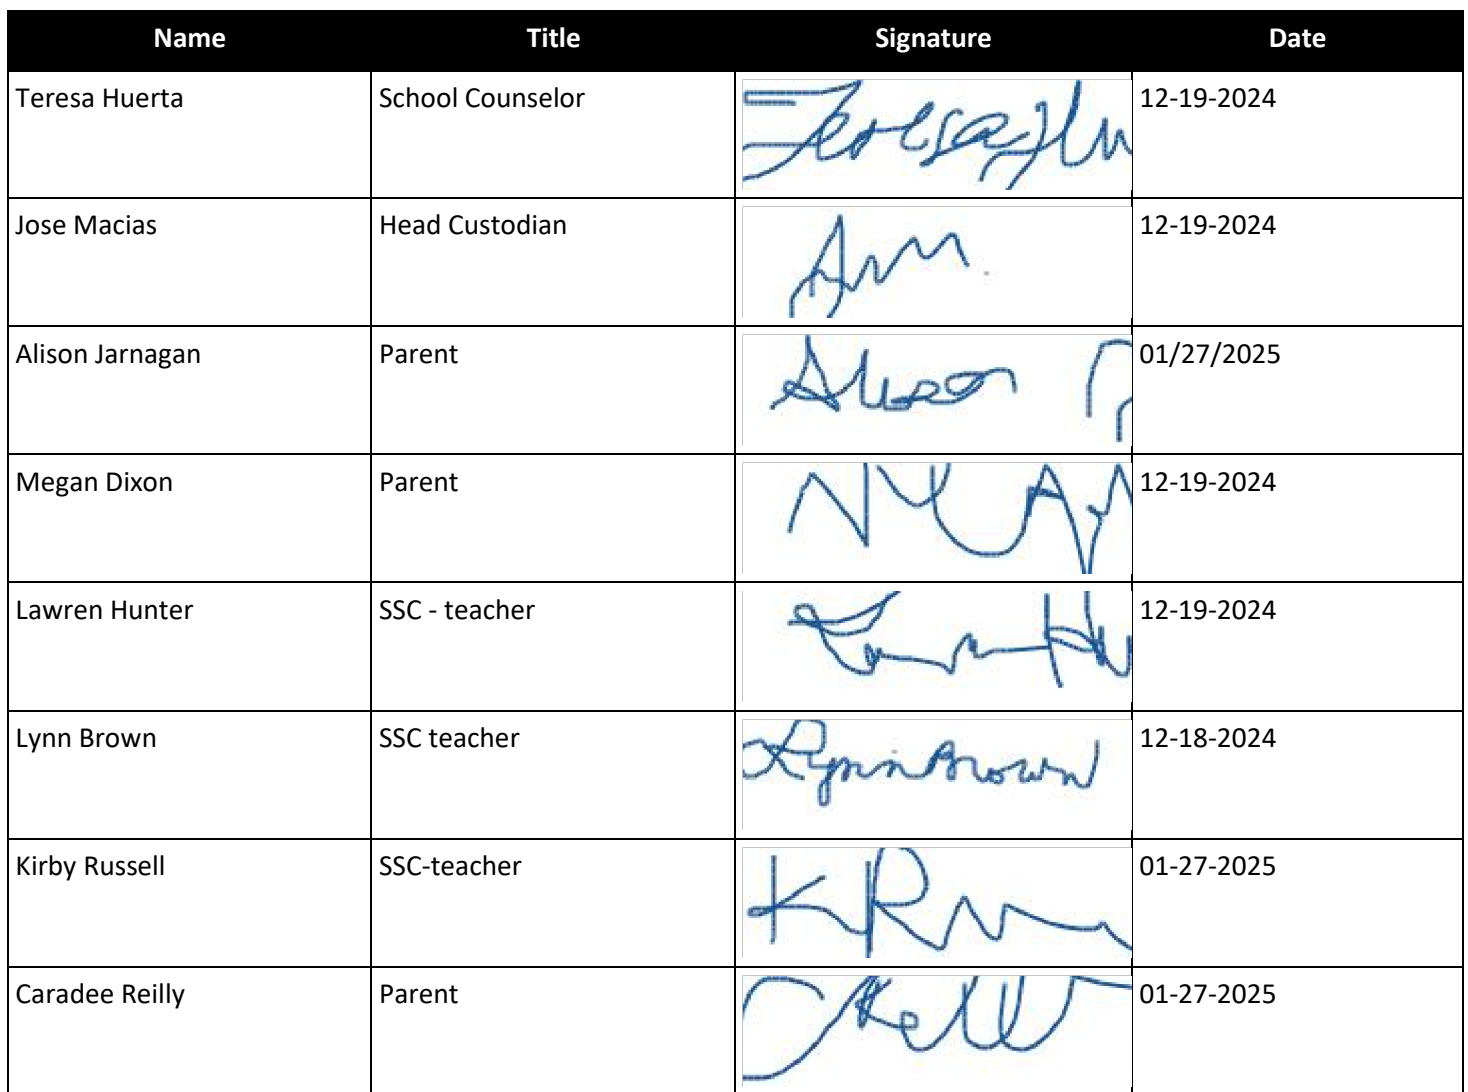 Name Title Signature Date
Teresa Huerta School Counselor Teresa Hu 12-19-2024
Jose Macias Head Custodian 12-19-2024
Alison Jarnagan Parent Alison 01/27/2025
Megan Dixon Parent 12-19-2024
Lawren Hunter SSC - teacher 12-19-2024
Lynn Brown SSC teacher Lynn Brown 12-18-2024
Kirby Russell SSC-teacher KR 01-27-2025
Caradee Reilly Parent 01-27-2025